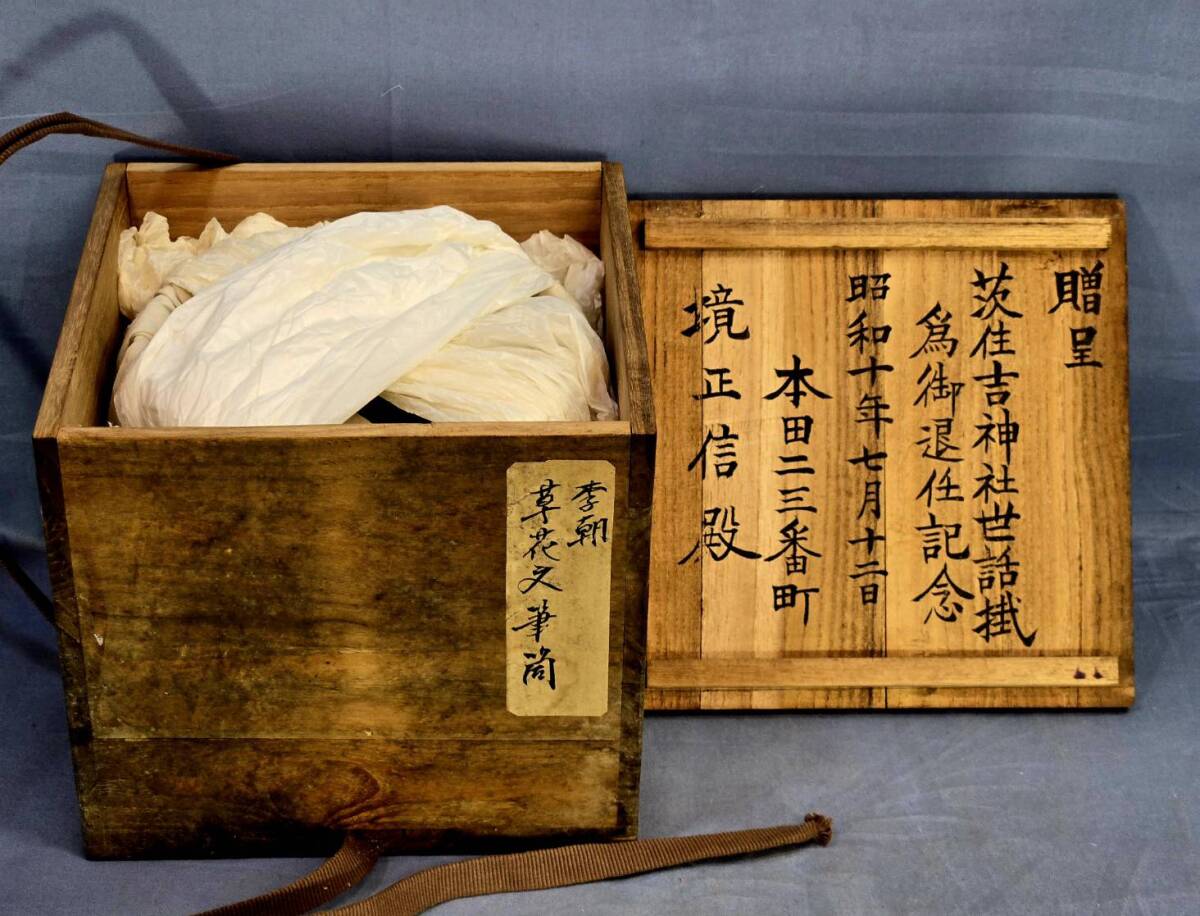 李朝
草花文筆筒
贈呈
茨住吉神社世話掛
為御退任記念
昭和十年七月十二日
本田二三番町
境正信殿